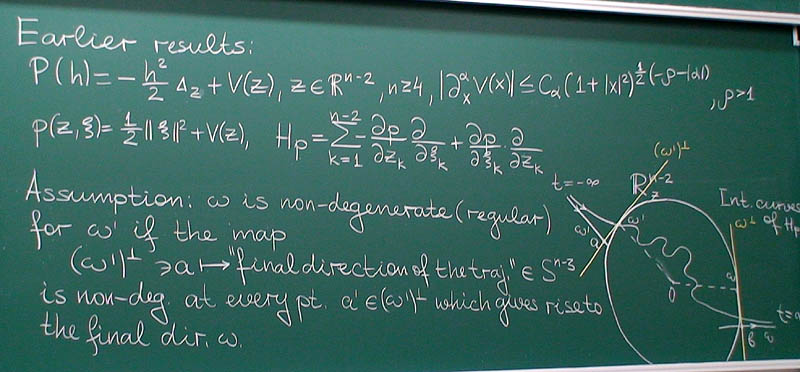 Earlier results:
P(h) = -h²/2 Δ_z + V(z), z ∈ ℝⁿ⁻², n ≥ 4, |∂ₓ^α V(x)| ≤ C_α (1+|x|²)^{½(-ρ-|α|)}, ρ > 1
p(z,ξ) = ½‖ξ‖² + V(z), H_p = Σ_{k=1}^{n-2} -∂p/∂z_k ∂/∂ξ_k + ∂p/∂ξ_k · ∂/∂z_k
Assumption: ω is non-degenerate (regular)
for ω' if the map
(ω')^⊥ ∋ a ↦ "final direction of the traj." ∈ Sⁿ⁻³
is non-deg. at every pt. a' ∈ (ω')^⊥ which gives rise to
the final dir. ω.
(ω')^⊥
t = -∞
ℝ_z^{n-2}
Int. curves
of H_p
ω^⊥
ω'
ω'
a
ω
0
t =
b